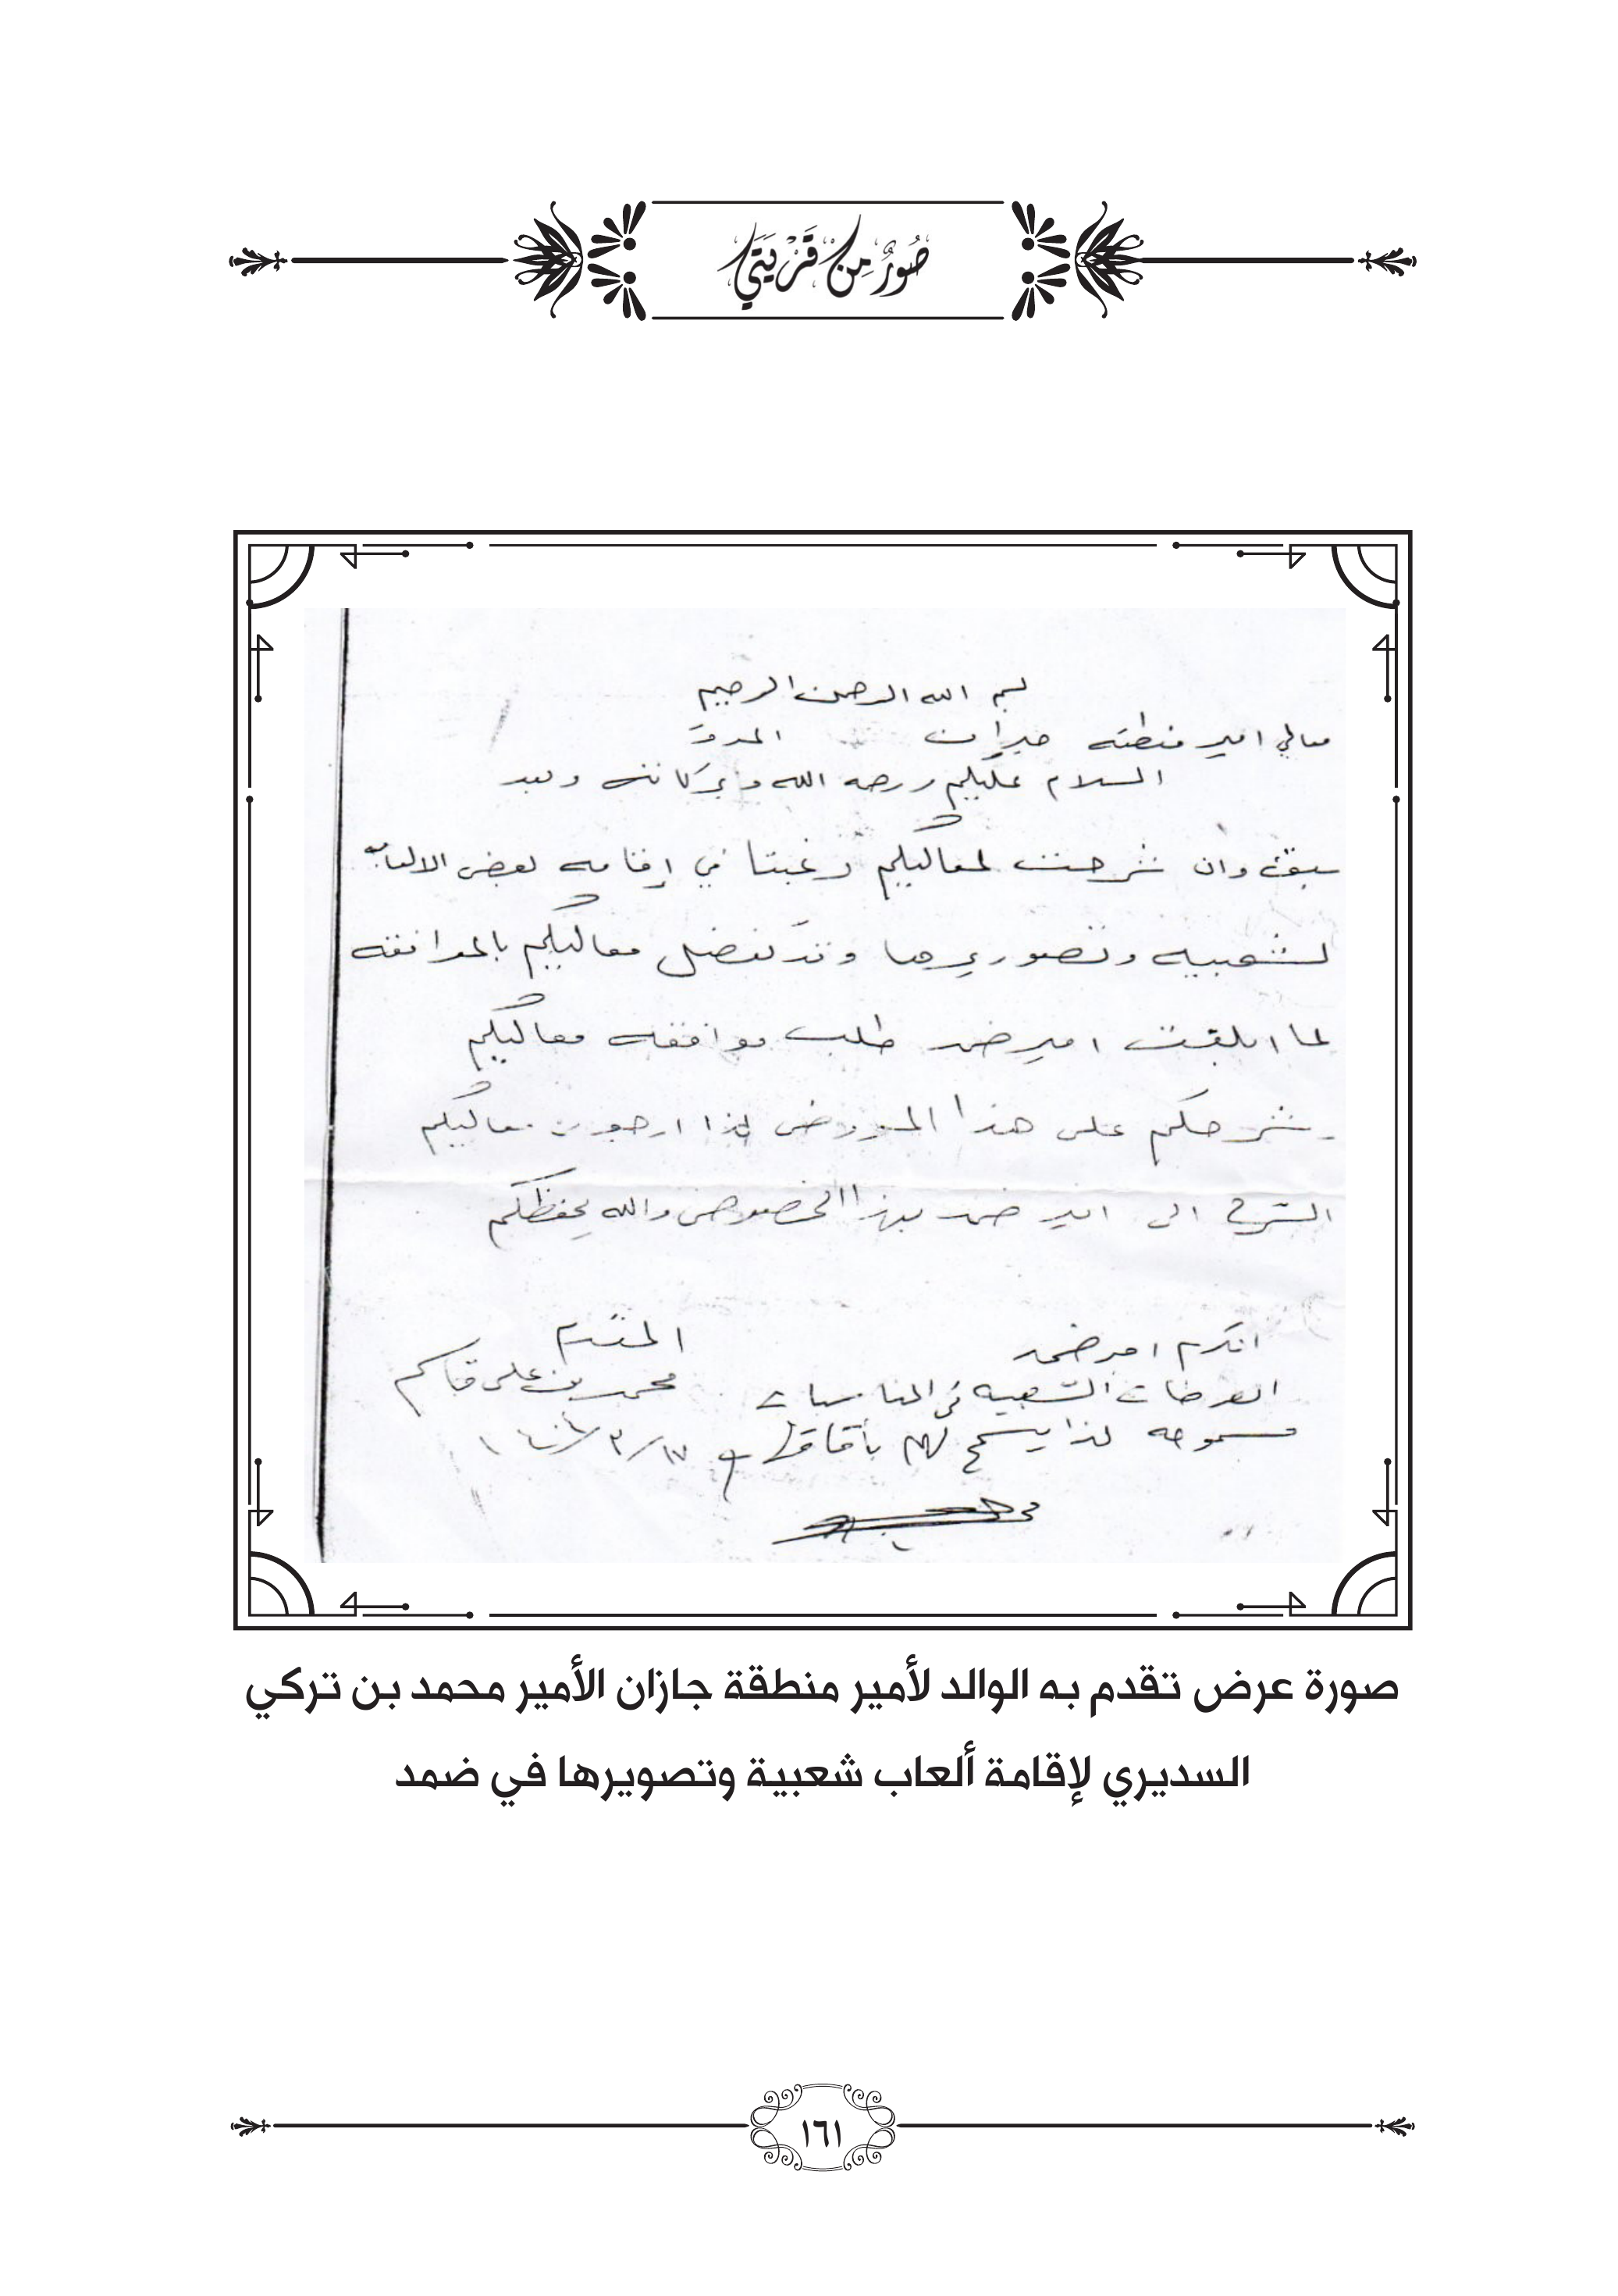 صُوَرٌ مِنْ قَرْيَتِي
بسم الله الرحمن الرحيم
معالي امير منطقة جيزان الموقر
السلام عليكم ورحمه الله وبركاته وبعد
سبق وان شرحت لمعاليكم رغبتنا في إقامه بعض الالعاب
لشعبيه وتصويرها وقد تفضل معاليكم بالموافقه
لما ابلغت امير ضمد طلب موافقه معاليكم
شرحكم على هذا المعروض لذا ارجو من معاليكم
الشرح الى امير ضمد بهذا الخصوص والله يحفظكم
المقدم
محمد بن علي قاسم
١٧/٣/
المكرم امير ضمد
العرضات الشعبيه في المناسبات
مسموحه لذا يسمح لهم بأقامتها
صورة عرض تقدم به الوالد لأمير منطقة جازان الأمير محمد بن تركي
السديري لإقامة ألعاب شعبية وتصويرها في ضمد
١٦١